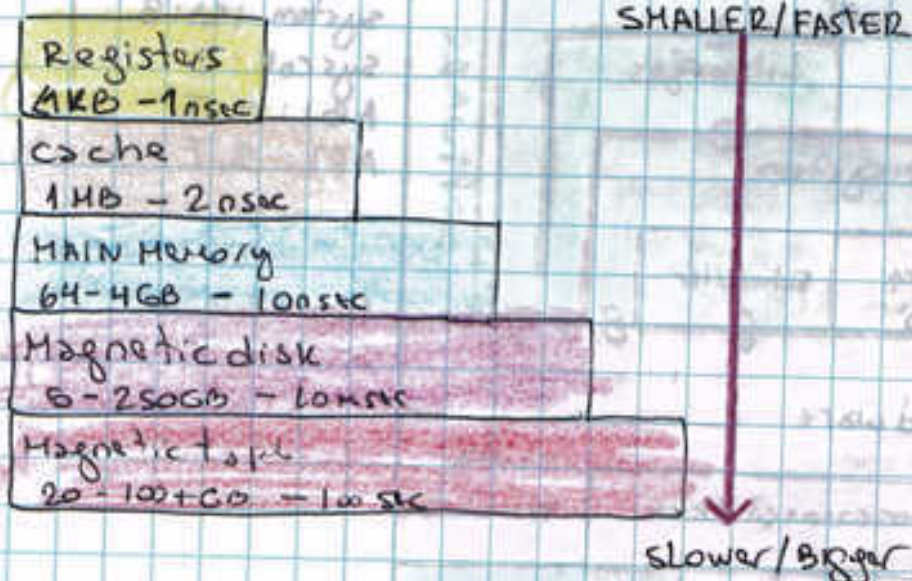 SMALLER/FASTER
Registers
1KB - 1nsec
cache
1MB - 2nsec
MAIN Memory
64-4GB - 10nsec
Magnetic disk
5-250GB - 10msec
Magnetic tape
20-100+GB - 100 sec
slower/Bigger